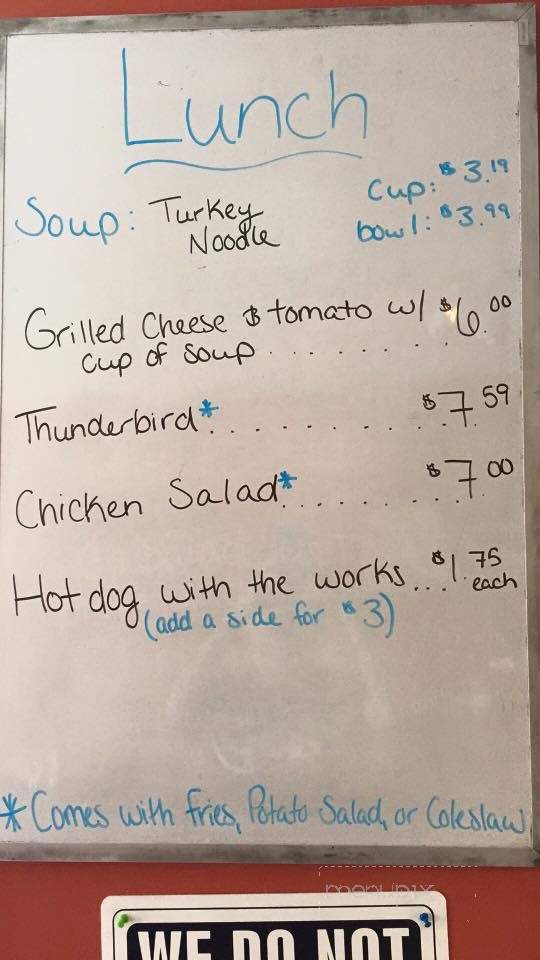 Lunch
Soup: Turkey Noodle
cup: $3.19
bowl: $3.99
Grilled Cheese & tomato w/ $6.00
cup of soup........
Thunderbird*.......... $7.59
Chicken Salad*....... $7.00
Hot dog with the works... $1.75 each
(add a side for $3)
*Comes with fries, Potato Salad, or Coleslaw
menupix
WE DO NOT